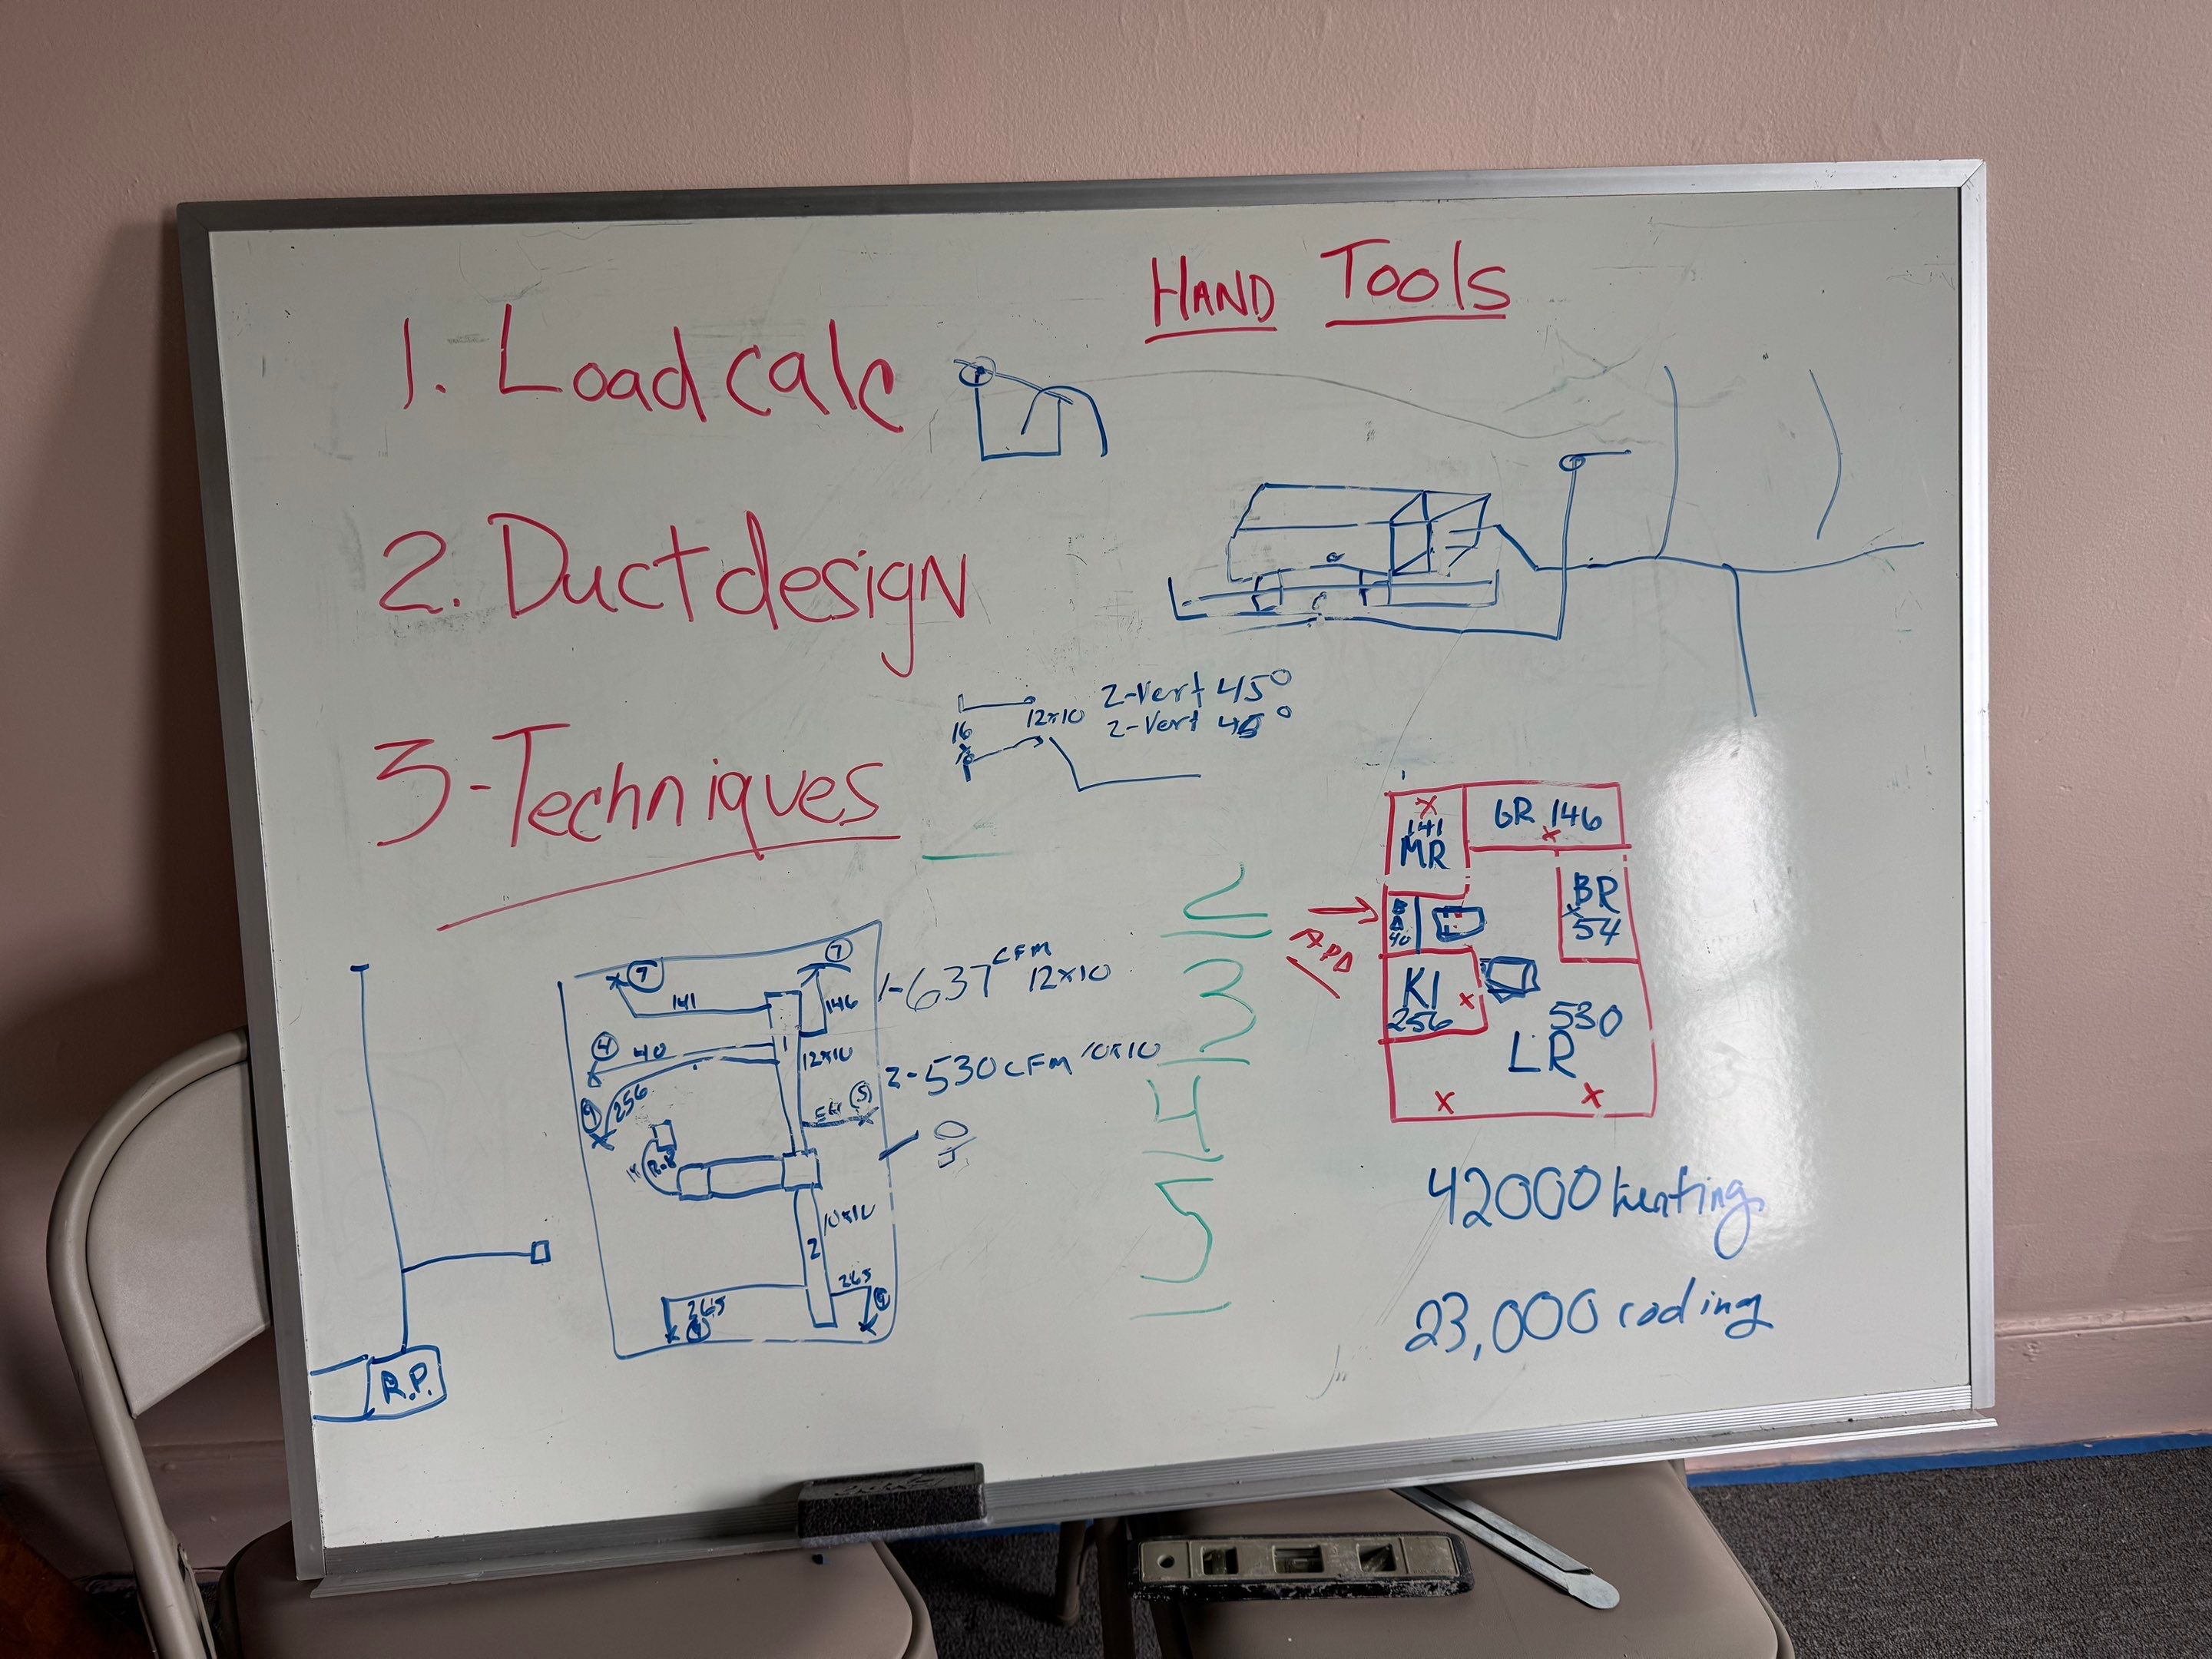 HAND Tools
1. Load calc
2. Duct design
3-Techniques
12x10 2-Vert 45°
16
2-Vert 45°
141
MR
GR 146
BR
54
40
KI
256
530
LR
42000 heating
23,000 cooling
7
7
141
146
1-637 CFM 12x10
4
40
1
12x10
2-530 CFM 10x10
9
256
5
10x10
2
265
265
R.P.
2
3
4
5